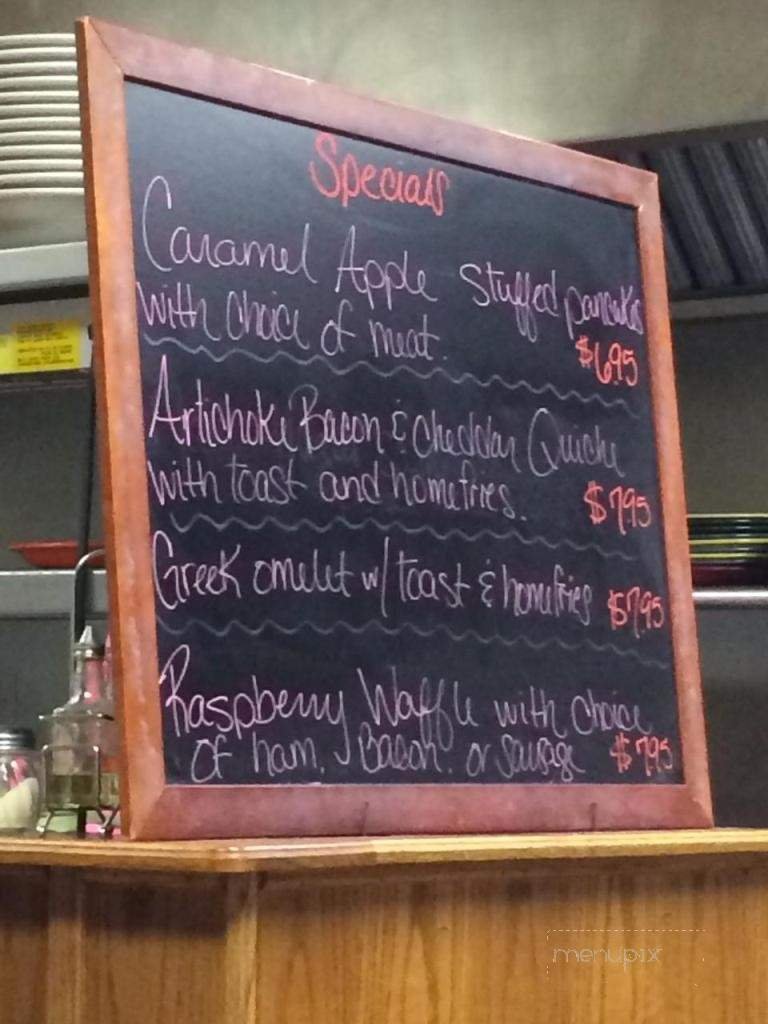 Specials
Caramel Apple Stuffed pancakes
with choice of meat.
$6.95
Artichoke Bacon & cheddar Quiche
with toast and homefries.
$7.95
Greek omelet w/ toast & homefries $7.95
Raspberry Waffle with choice
of ham, Bacon, or Sausage $7.95
menupix